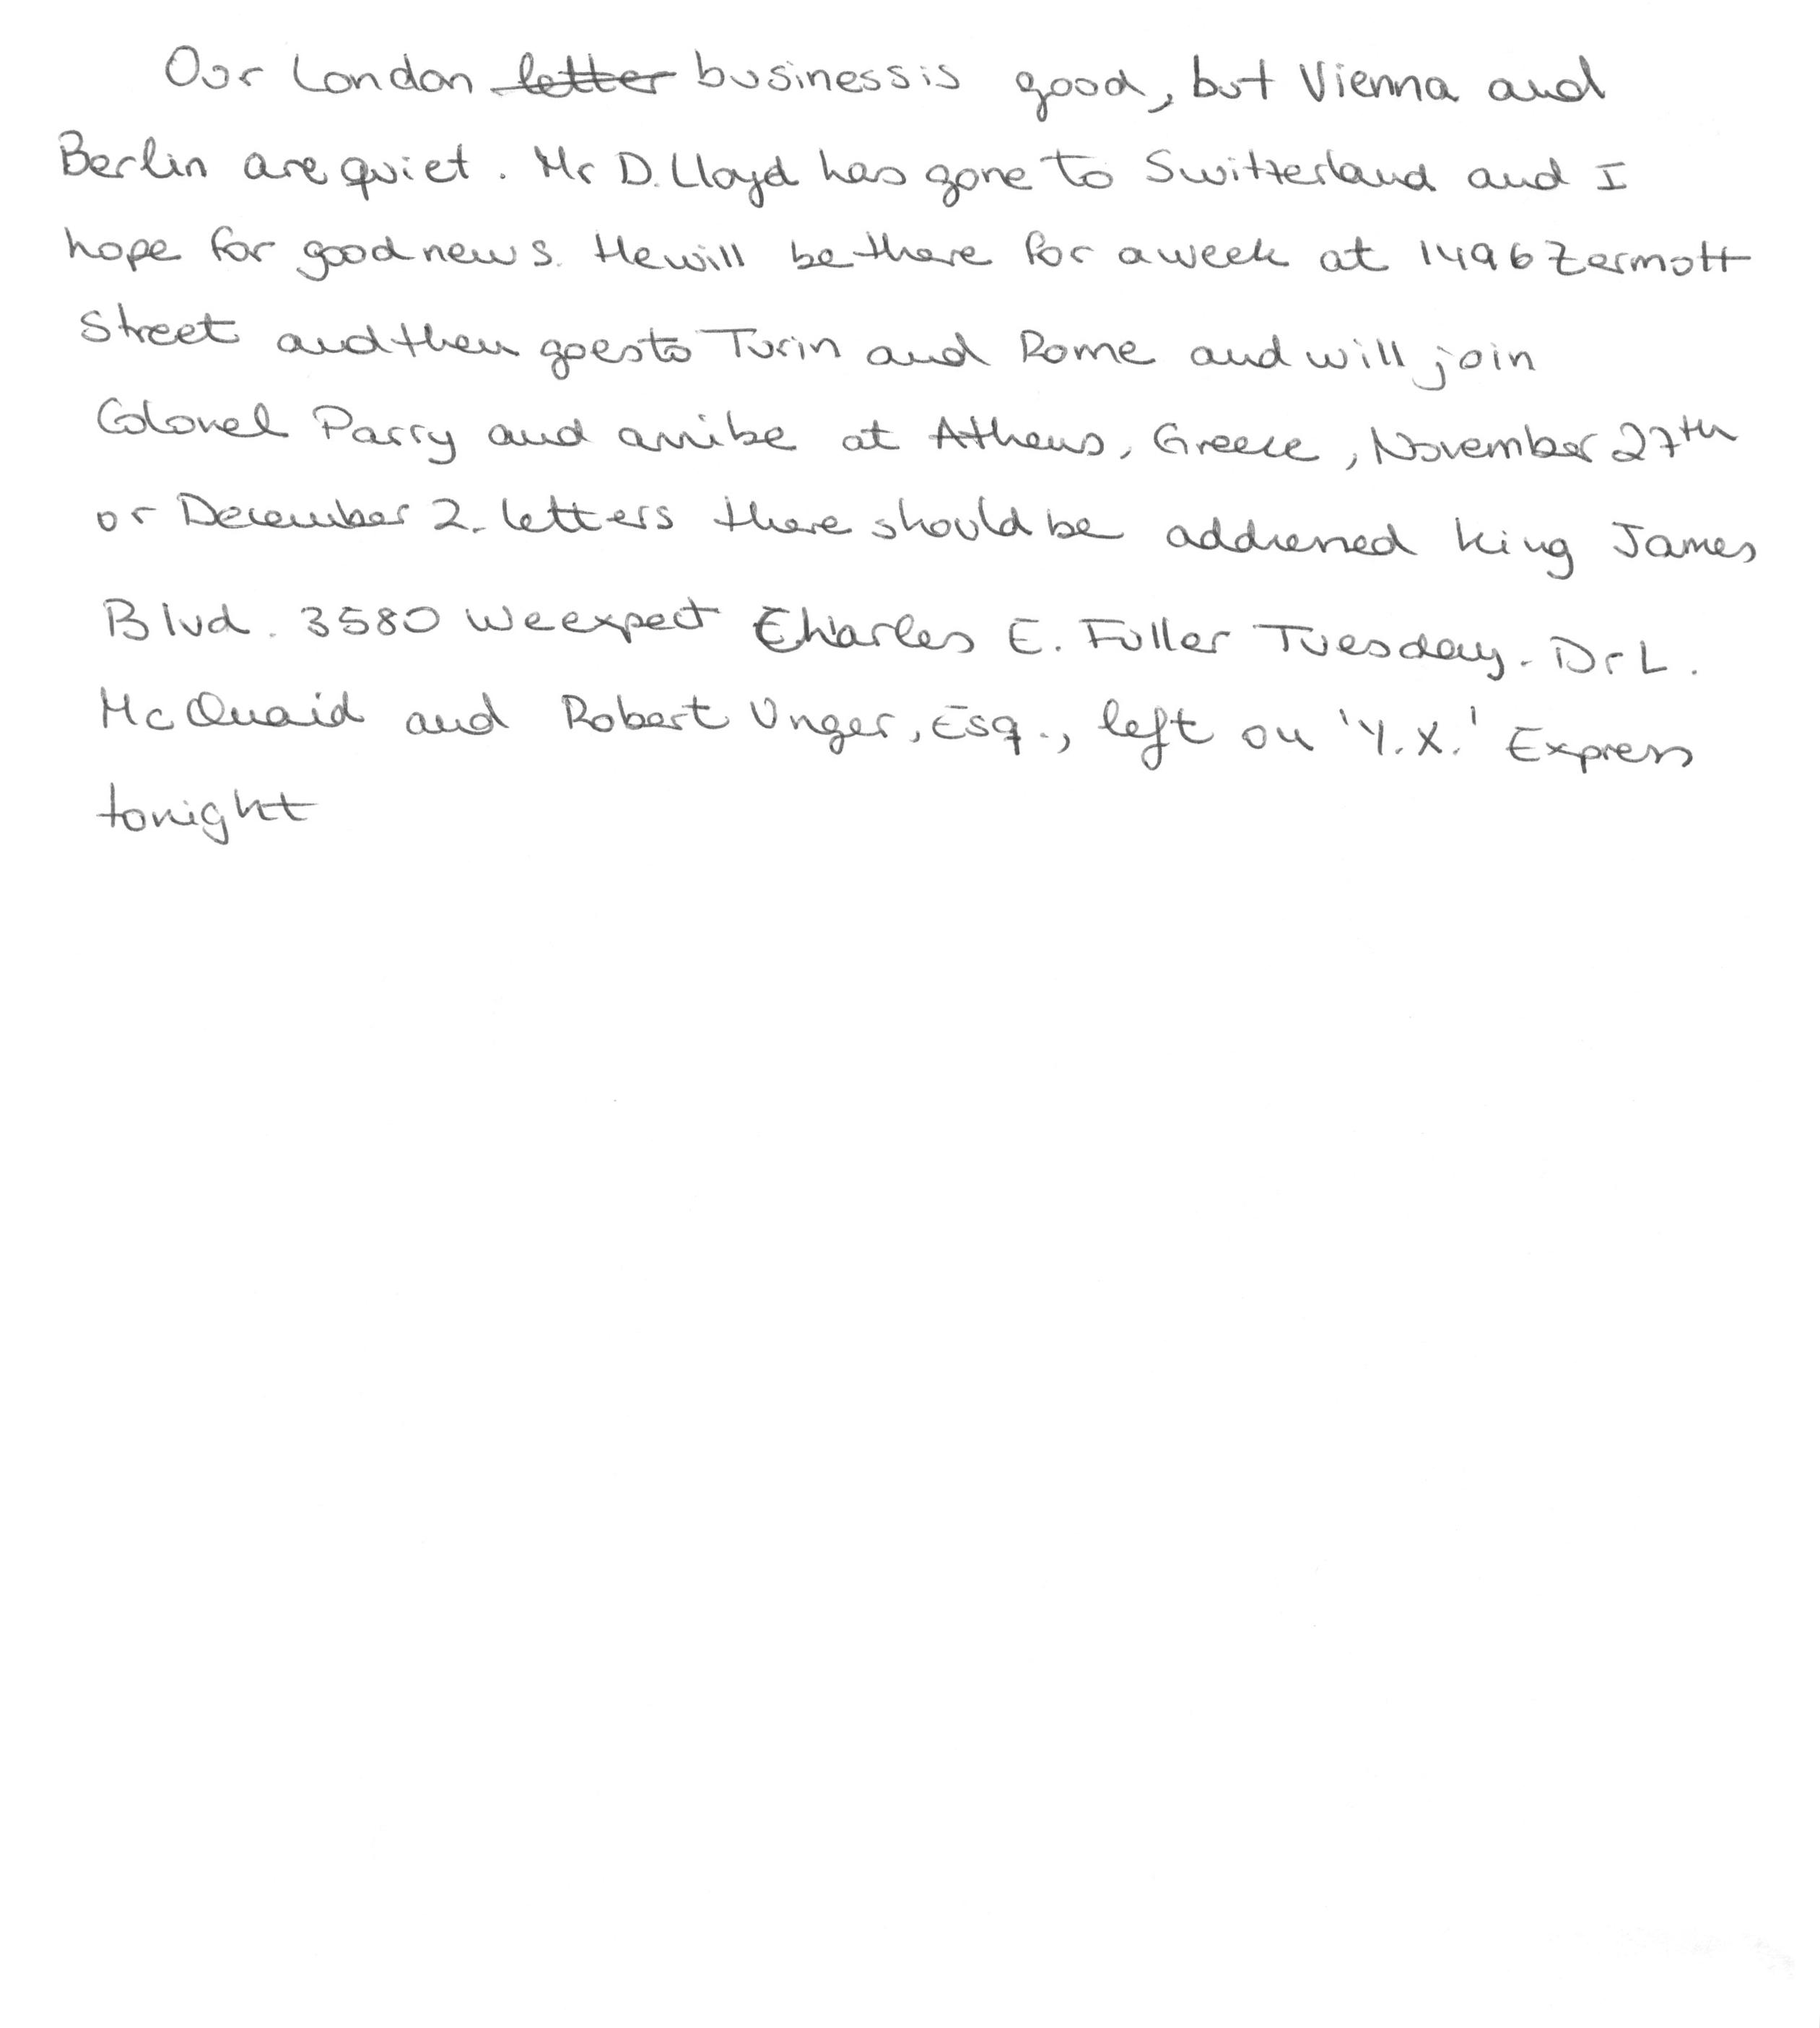 Our London ~~letter~~ business is good, but Vienna and
Berlin are quiet. Mr D. Lloyd has gone to Switzerland and I
hope for good news. He will be there for a week at 1496 Zermott
Street and then goes to Turin and Rome and will join
Colonel Parry and arribe at Athens, Greece, November 27th
or December 2. Letters there should be addressed King James
Blvd. 3580 We expect Charles E. Fuller Tuesday. Dr L.
McQuaid and Robert Unger, Esq., left on 'Y.X.' Express
tonight